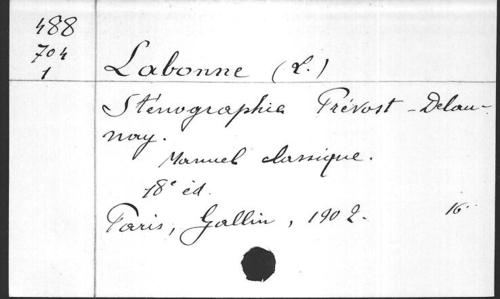 488
704
1
Labonne (L.)
Sténographie Prévost-Delau-
nay.
Manuel classique.
18e éd.
Paris, Gallin, 1902. 16°